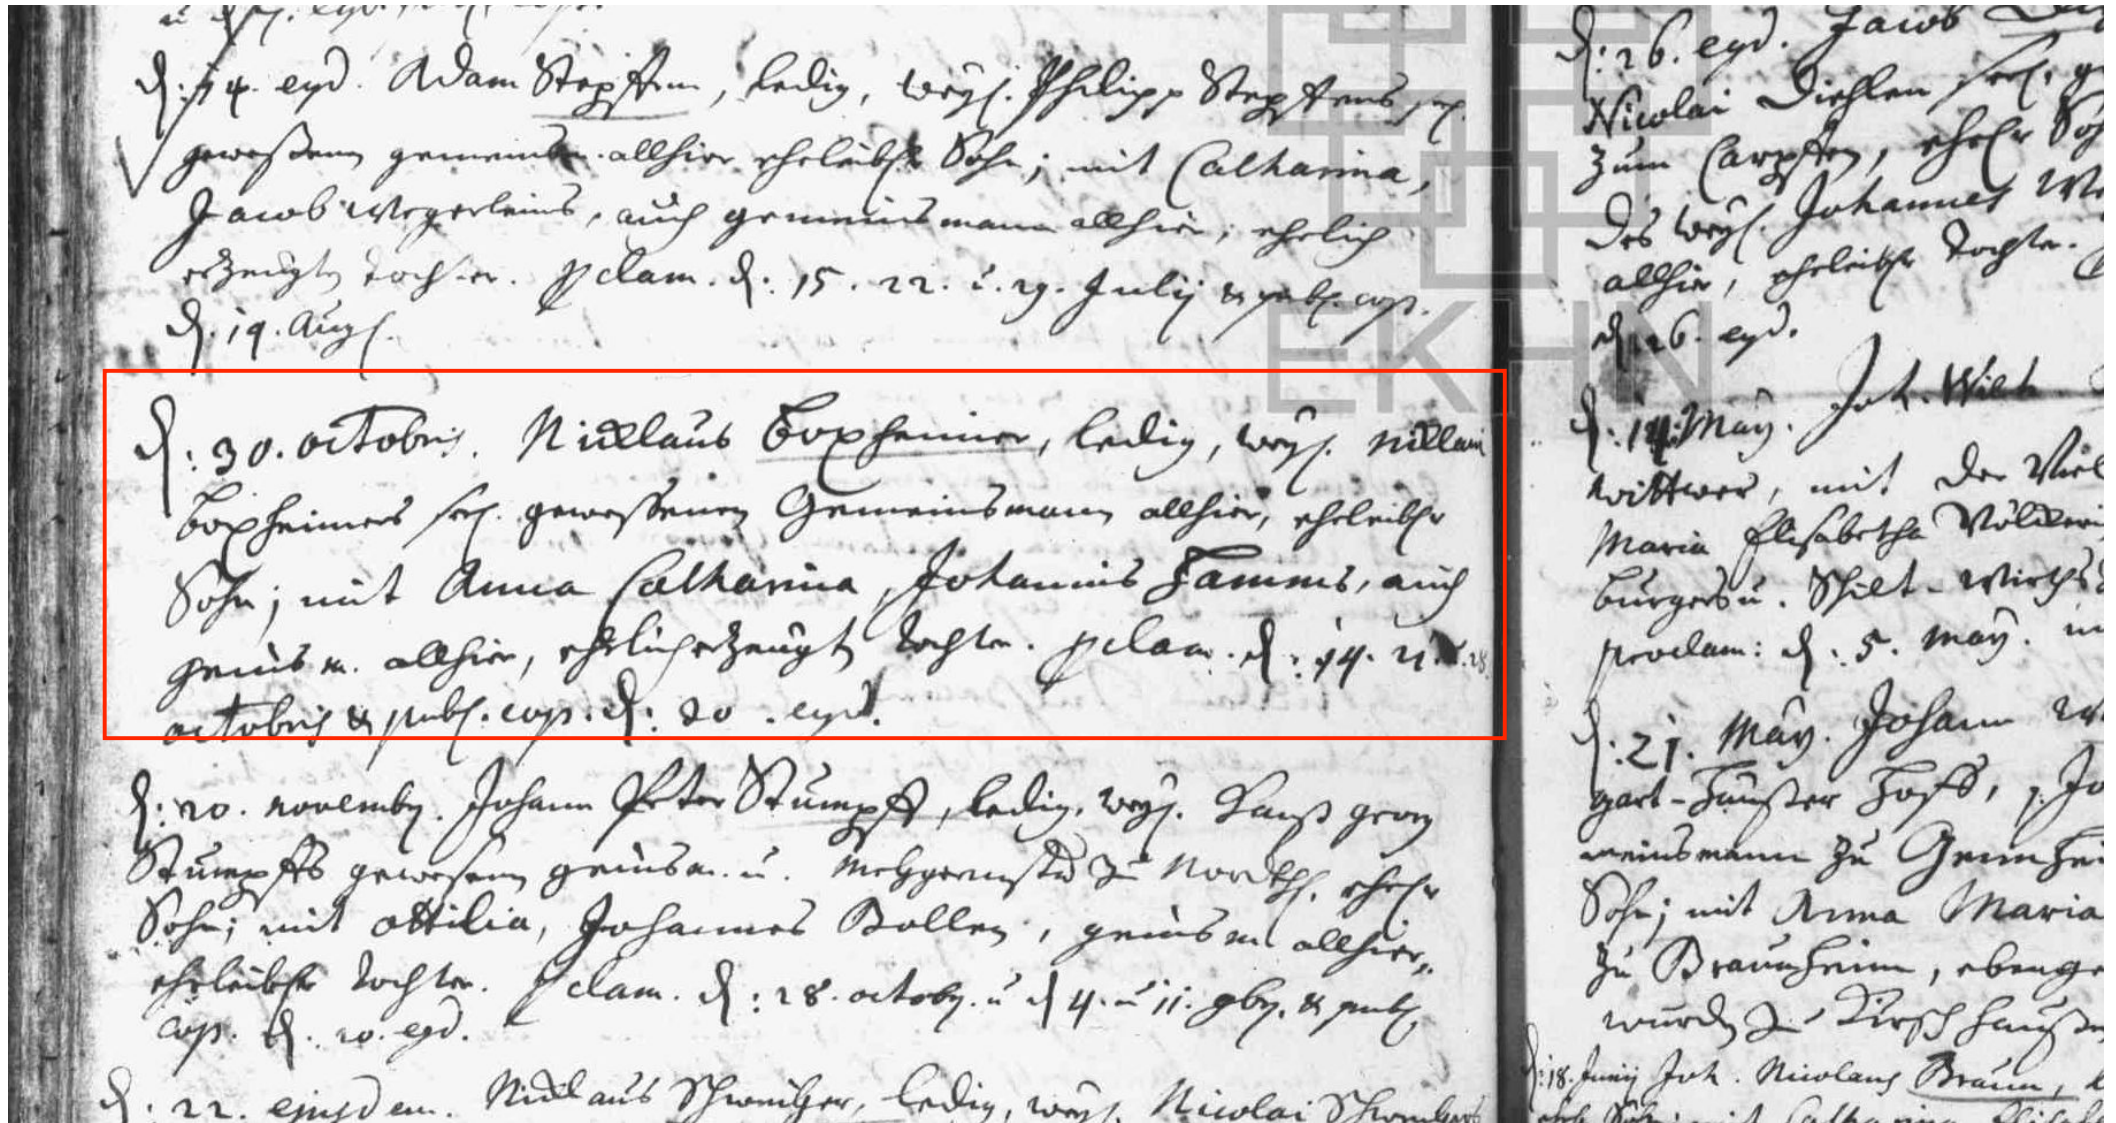 d. 14. eyd. Adam Stepffen, ledig, weyl. Philipp Stepffens sel.
gewesenen gemeinsm. allhier eheleibl. Sohn; mit Catharina,
Jacob Wegerleins, auch gemeinsmann allhier, ehelich
erzeugte Tochter. pclam. d. 15. 22. u. 29. Julij & publ. cop.
d. 19. Aug.
d: 30. octobris. Nicklaus Boxheimer, ledig, weyl. Nicklaus
Boxheimers sel. gewessenen Gemeinsmann allhier, eheleibl.
Sohn; mit Anna Catharina, Johannis Hamms, auch
gemeinsm. allhier, ehelich erzeugte Tochter. pclam. d: 14. 21. u. 28.
octobris & publ. cop. d: 30. eyd.
d: 20. novembr. Johann Peter Stumpff, ledig, weyl. Hanß Georg
Stumpffs gewesenen gemeinsm. u. Metzgermstr zu Nordh. ehel.
Sohn; mit Ottilia, Johannes Bollen, gemeinsm allhier,
eheleibl. Tochter. pclam. d: 28. octobr. u d 4. u 11. 9br. & publ.
cop. d. 20. eyd.
d: 22. ejusdem. Nicklaus ledig, weyl. Nicolai
d: 26. eyd. Jacob
Nicolai Diehlen sel.
zum Carpffen, ehel. Sohn
des weyl. Johannes
allhier, eheleibl. Tochter.
d 26. eyd.
d: 14. May. Joh. Wilh.
wittwer, mit der Viel
Maria Elisabetha
burgers u. Schilt-Wirths
proclam: d: 5. May.
d: 21. May. Johann
meinsmann zu
Sohn; mit Anna Maria
zu
wurden zu
d: 18. Junij Joh. Nicolaus Braun,
ehel. Sohn mit Catharina
EKHN